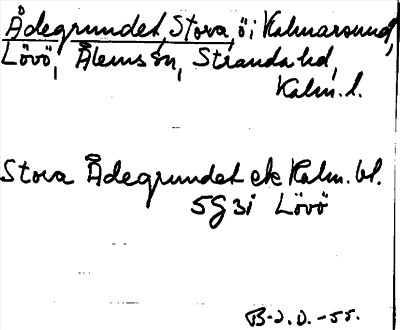 Ådegrundet, Stora, ö i Kalmarsund,
Lövö, Ålems sn, Stranda hd,
Kalm. l.
Stora Ådegrundet ek Kalm. bl.
5G3i Lövö
B-J. O. -55.